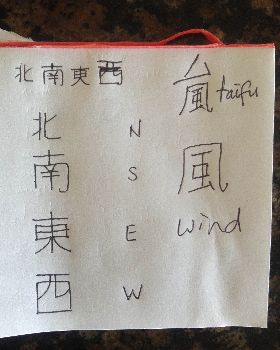 北南東西
北 N
南 S
東 E
西 W
嵐 taifu
風
wind